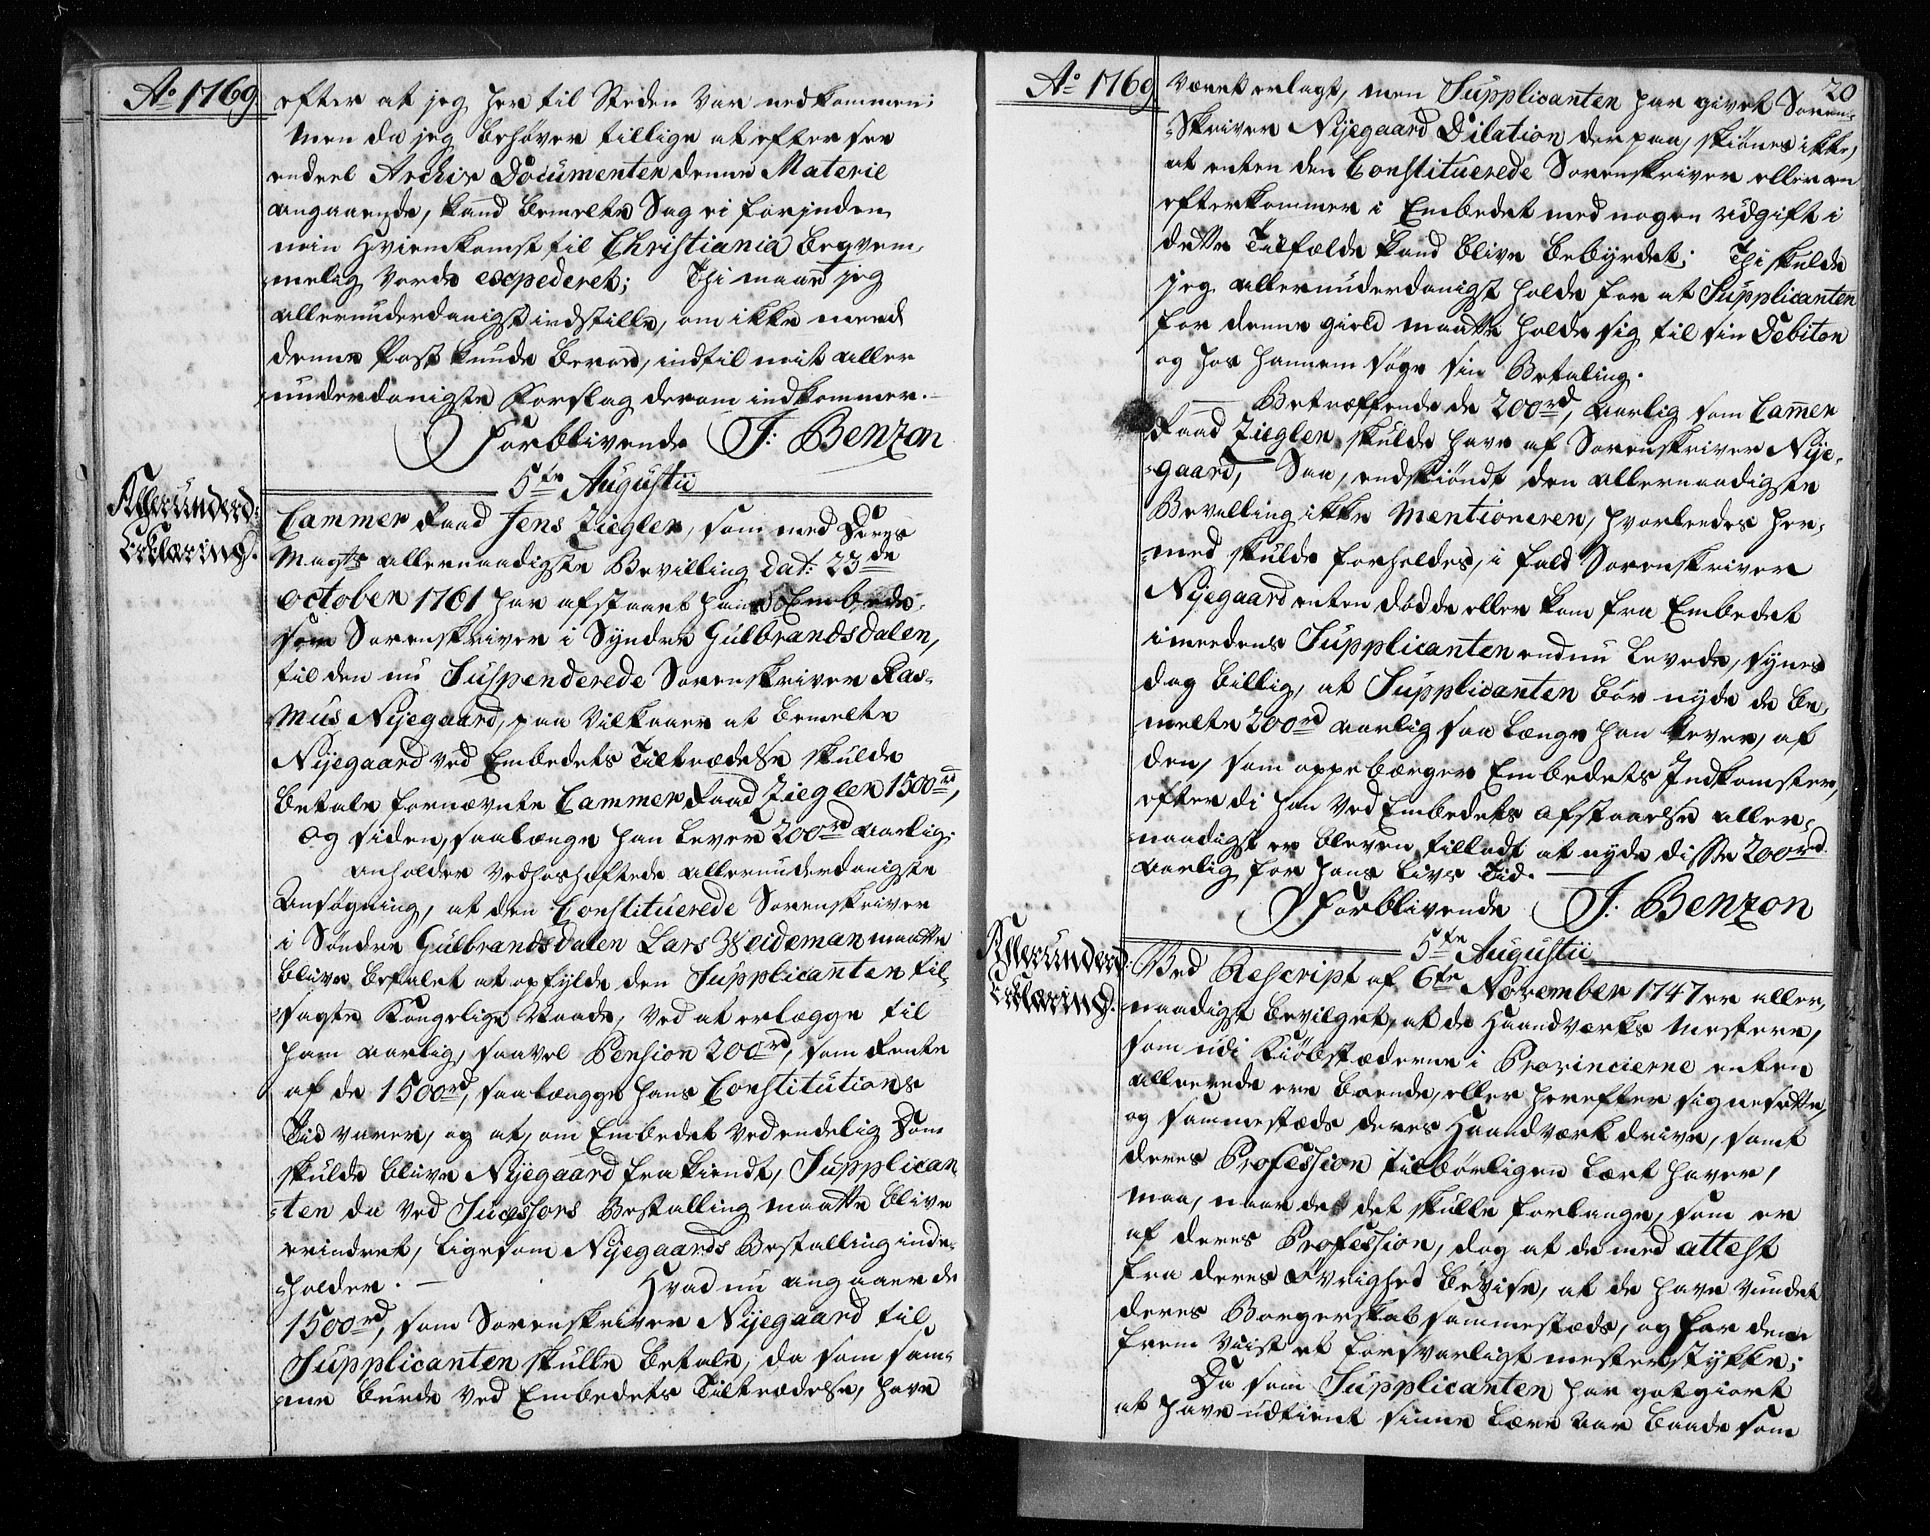 Ao 1769.
efter at jeg her til Steden var nedkommen;
Men da jeg behøver tillige at efter see
endeel Archiv Documenter denne Materie
angaaende, kand bemelte Sag ei forinden
min Hiemkomst til Christiania beqvem-
melig vorde expederet; Thi maae jeg
allerunderdanigst indstille, om ikke med
denne Post kunde beroe, indtil mit aller
underdanigste Forslag derom indkommer.
Forblivende J: Benzon
5te Augustii
Allerunderd:
Erklæring.
Cammer Raad Jens Ziegler, som med Deres
Mayts allernaadigste Bevilling dat: 23de
October 1761 har afstaaet hans Embede
som Sorenskriver i Syndre Gulbrandsdalen,
til den nu Suspenderede Sorenskriver Ras-
mus Nijegaard, paa Vilkaar at bemelte
Nijegaard ved Embedets Tiltrædelse skulde
betale fornævnte Cammer Raad Ziegler 1500rd,
og siden, saalænge han lever 200rd aarlig;
anholder vedhoshæftede allerunderdanigste
Ansøgning, at den Constituerede Sorenskriver
i Søndre Gulbrandsdalen Lars Weideman maatte
blive befalet at opfylde den Supplicanten til-
sagte Kongelige Naade, ved at erlægge til
ham aarlig, saavel Pension 200rd, som Rente
af de 1500rd, saalænge hans Constitutions
Tid varer, og at, om Embedet ved endelig Dom
skulde blive Nijegaard fra kiendt, Supplican-
ten da ved Sucessors Bestalling maatte blive
erindret, ligesom Nijegaards Bestalling inde-
holder. Hvad nu angaaer de
1500rd, som Sorenskriver Nijegaard til
Supplicanten skulle betale, da som sam-
me burde ved Embedets Tiltrædelse, have
Ao 1769
20
været erlagt, men Supplicanten har givet Soren-
Skriver Nijegaard Dilation derpaa, skiønes ikke,
at enten den Constituerede Sorenskriver eller en
efterkommer i Embedet med nogen udgift i
dette Tilfælde kand blive bebyrdet; Thi skulde
jeg allerunderdanigst holde for at Supplicanten
for denne gield maatte holde sig til sin Debitor
og hos hannem søge sin Betaling.
Betræffende de 200rd, aarlig som Cammer
Raad Ziegler skulde have af Sorenskriver Nije-
gaard, Saa, endskiøndt den allernaadigste
Bevilling ikke Mentionerer, hvorledes her-
med skulde forholdes, i fald Sorenskriver
Nijegaard enten døde eller kom fra Embedet
imedens Supplicanten endnu levede, synes
dog billig, at Supplicanten bør nyde de be-
melte 200rd aarlig saa længe han lever, af
den, som oppebærger Embedets Indkomster,
efterdi han ved Embedets Afstaaelse aller-
naadigst er bleven tilladt at nyde disse 200rd
aarlig for hans Livs Tid.
Forblivende J: Benzon
5te Augustii
Allerunderd:
Erklæring.
Ved Rescript af 6te November 1747 er aller-
naadigst bevilget, at de Haandværks Mestere,
som udi Kiøbstæderne i Provincierne enten
allerede ere boende, eller herefter sig nesætte,
og sammestæds deres Haandværk drive, samt
deres Profession tilbørligen lært haver,
maa, naar de det skulle forlange, som er
af deres Profession, dog at de med attest
fra deres Øvrighed bevise, at de have vundet
deres Borgerskab sammestæds, og for dem
frem viist et forsvarligt mesterstykke;
Da som Supplicanten har godgiort
at have udtient sinne Lære Aar baade som